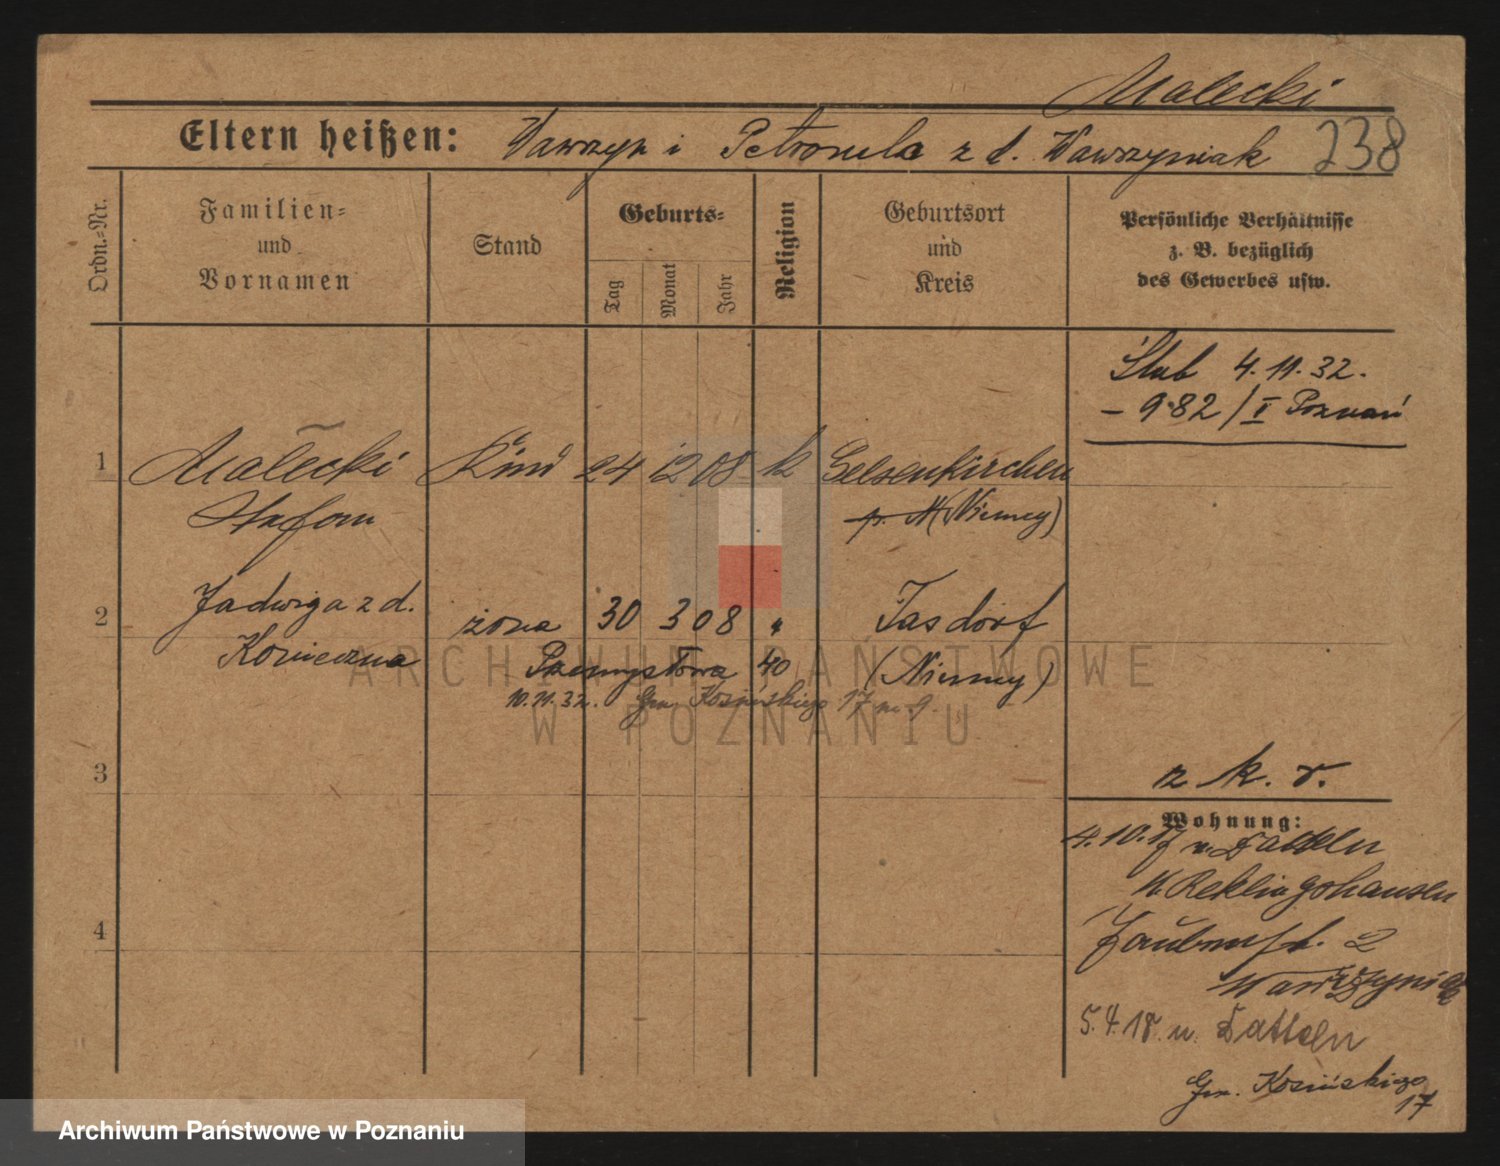 Małecki
Eltern heißen: Wawrzyn i Petronela z d. Wawrzyniak 238
Ordn.=Nr.
Familien=
und
Vornamen
Stand
Geburts=
Tag
Monat
Jahr
Religion
Geburtsort
und
Kreis
Persönliche Verhältnisse
z. B. bezüglich
des Gewerbes usw.
Ślub 4.11.32.
– 982/I Poznań
1 Małecki Kind 24 12 08 k Gelsenkirchen
Stefan (Niemcy)
2 Jadwiga z d. żona 30 3 08 " Jasdorf
Konieczna Przemysłowa 40 (Niemcy)
10.11.32. Gen. Kosińskiego 17 m. 9.
3
z k. r.
Wohnung:
4.10.17 v. Datteln
K. Reklingshausen
2
Wawrzyniak
4
5.4.18. n. Datteln
Gen. Kosińskiego
17
ARCHIWUM PAŃSTWOWE
W POZNANIU
Archiwum Państwowe w Poznaniu